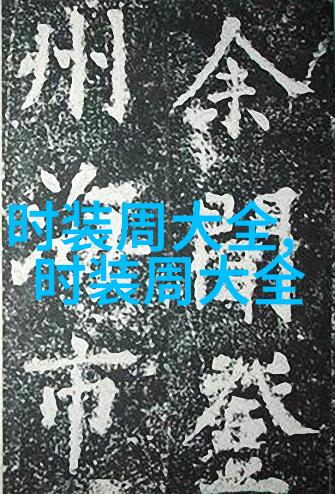 余聞登
州海市
时装周大全,
时装周大全